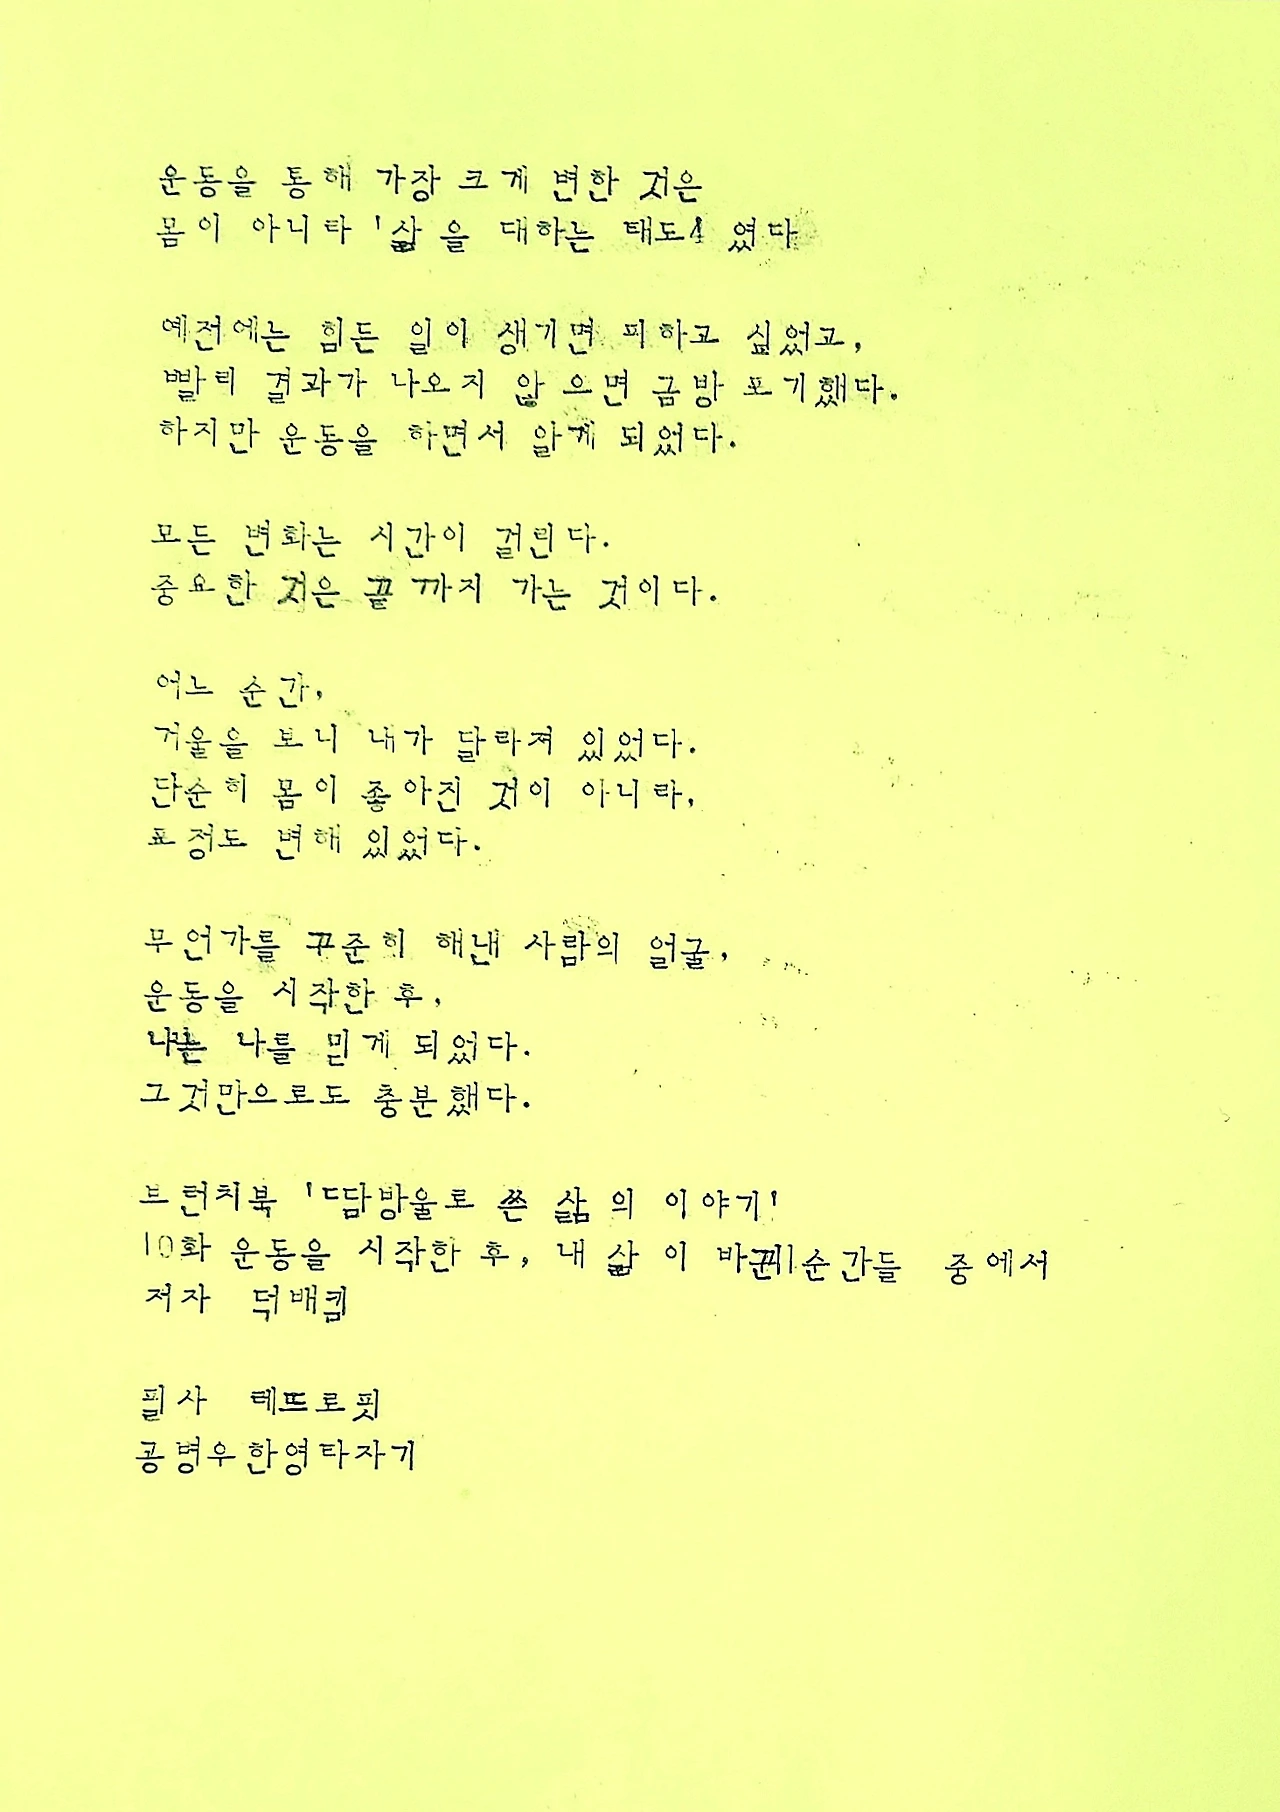 운동을 통해 가장 크게 변한 것은
몸이 아니라 '삶을 대하는 태도' 였다
예전에는 힘든 일이 생기면 피하고 싶었고,
빨리 결과가 나오지 않으면 금방 포기했다.
하지만 운동을 하면서 알게 되었다.
모든 변화는 시간이 걸린다.
중요한 것은 끝까지 가는 것이다.
어느 순간,
거울을 보니 내가 달라져 있었다.
단순히 몸이 좋아진 것이 아니라,
표정도 변해 있었다.
무언가를 꾸준히 해낸 사람의 얼굴,
운동을 시작한 후,
나는 나를 믿게 되었다.
그것만으로도 충분했다.
브런치북 '땀방울로 쓴 삶의 이야기'
10화 운동을 시작한 후, 내 삶이 바뀐 순간들 중에서
저자 덕배킴
필사 테뜨로핏
공병우한영타자기